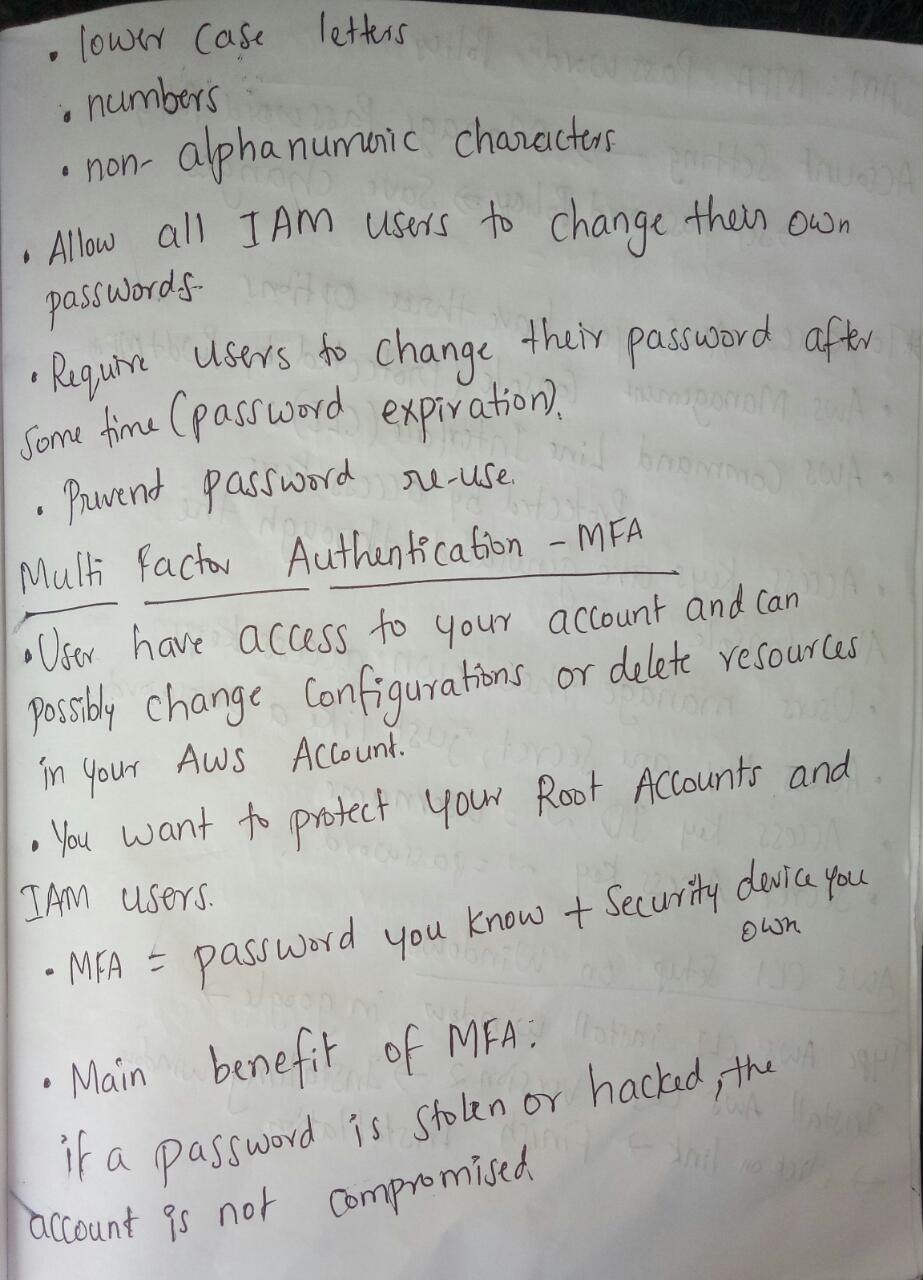 • lower case letters
• numbers
• non-alphanumeric characters
• Allow all IAM users to change their own
passwords.
• Require users to change their password after
some time (password expiration).
• Prevent password re-use.
Multi Factor Authentication - MFA
• User have access to your account and can
possibly change configurations or delete resources
in your AWS Account.
• You want to protect your Root Accounts and
IAM users.
• MFA = password you know + Security device you
own
• Main benefit of MFA:
if a password is stolen or hacked, the
account is not compromised